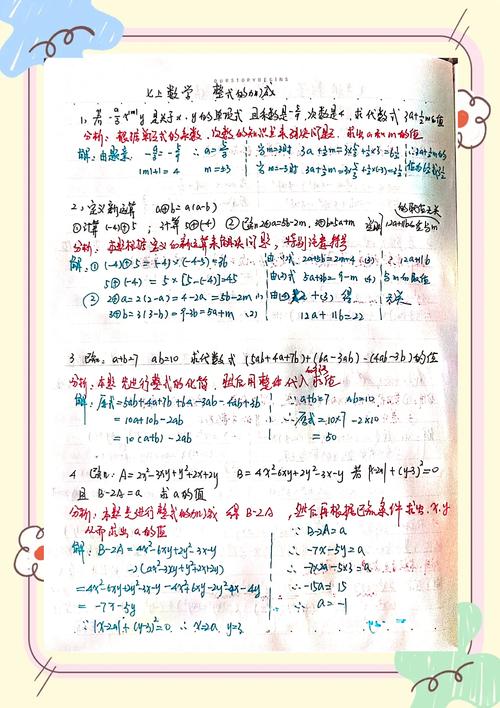 OURSTORYBEGINS
七上数学 整式的加减
1. 若 -a/3 x^|m| y 是关于x、y的单项式 且系数是-5/9, 次数是4, 求代数式 3a+½m的值
分析: 根据单项式的系数、次数的知识点来解决问题, 求出a和m的值
解: 由题意 -a/3=-5/9 ∴a=5/3
|m|+1=4 m=±3
当m=3时 3a+½m=3×5/3+½×3=6½
当m=-3时 3a+½m=3×5/3+½×(-3)=3½
2. 定义新运算 a⊕b=a(a-b)
①计算(-4)⊕5 ; 计算5⊕(-4) ②已知2⊕a=5b-2m, 3⊕b=5a+m 12a+11b的值与m的取值无关
分析: 本题根据定义的新运算来解决问题, 特别注意符号
解: ①(-4)⊕5=(-4)×(-4-5)=36
5⊕(-4)=5×[5-(-4)]=45
②2⊕a=2(2-a)=4-2a=5b-2m (1)
3⊕b=3(3-b)=9-3b=5a+m (2)
由(1)式 2a+5b=2m+4 (3)
由(2)式 5a+3b=9-m (4)
12a+11b=22
∴12a+11b
与m的取值
无关
3 已知: a+b=7 ab=10 求代数式 (5ab+4a+7b)+(6a-3ab)-(4ab-3b)的值
分析: 本题先进行整式的化简, 然后用整体代入求值
解: 原式=5ab+4a+7b+6a-3ab-4ab+3b
=10a+10b-2ab
=10(a+b)-2ab
∵a+b=7 ab=10
∴原式=10×7-2×10
=50
4 已知: A=2x²-3xy+y²+2x+2y B=4x²-6xy+2y²-3x-y 若|x-2a|+(y-3)²=0
且 B-2A=a 求a的值
分析: 本题先进行整式的加减 得B-2A, 然后再根据已知条件求出x、y
从而求出a的值
解: B-2A=4x²-6xy+2y²-3x-y
-2(2x²-3xy+y²+2x+2y)
=4x²-6xy+2y²-3x-y-4x²+6xy-2y²-4x-4y
=-7x-5y
∵|x-2a|+(y-3)²=0 ∴x=2a y=3
∵B-2A=a
∴-7x-5y=a
∴-7×2a-5×3=a
∴-15a=15
∴a=-1